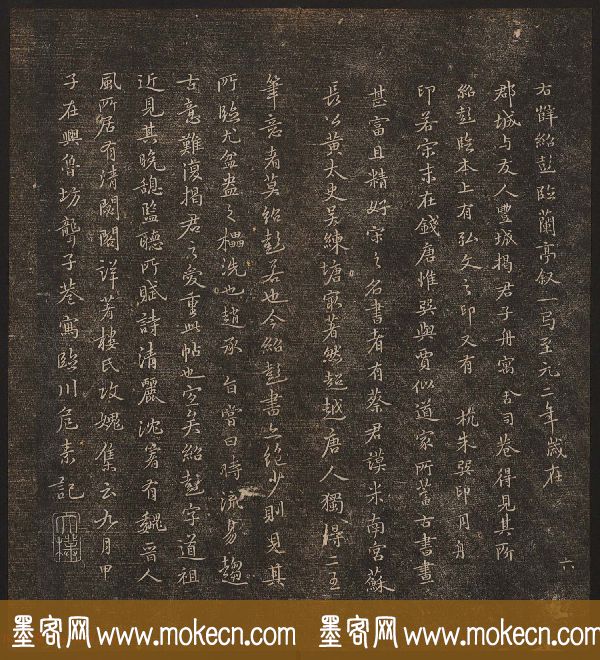 右薛紹彭臨蘭亭叙一卷至元二年歲在
郡城与友人豐城揭君子舟寓金司巷得見其所
紹彭臨本上有弘文之印又有 杭朱巽印 同舟
印若宋末在錢唐惟巽與賈似道家所蓄古書畫
甚富且精好宋之名書者有蔡君謨米南宮蘇
長公黃太史吴練塘最著然超越唐人獨得二王
筆意者莫紹彭若也今紹彭書亦絕少則見其
所臨尤益盡之欞洗也趙承 旨嘗曰時流易趨
古意難復揭君之愛重此帖也宜矣紹彭字道祖
近見其晚憩監聽所賦詩清麗沈着有魏晉人
風所居有清閟閣詳著樓氏攻媿集云九月甲
子在興魯坊聾子巷寓臨川危素記
六
墨客网 www.mokecn.com 墨客网 www.mokecn.com